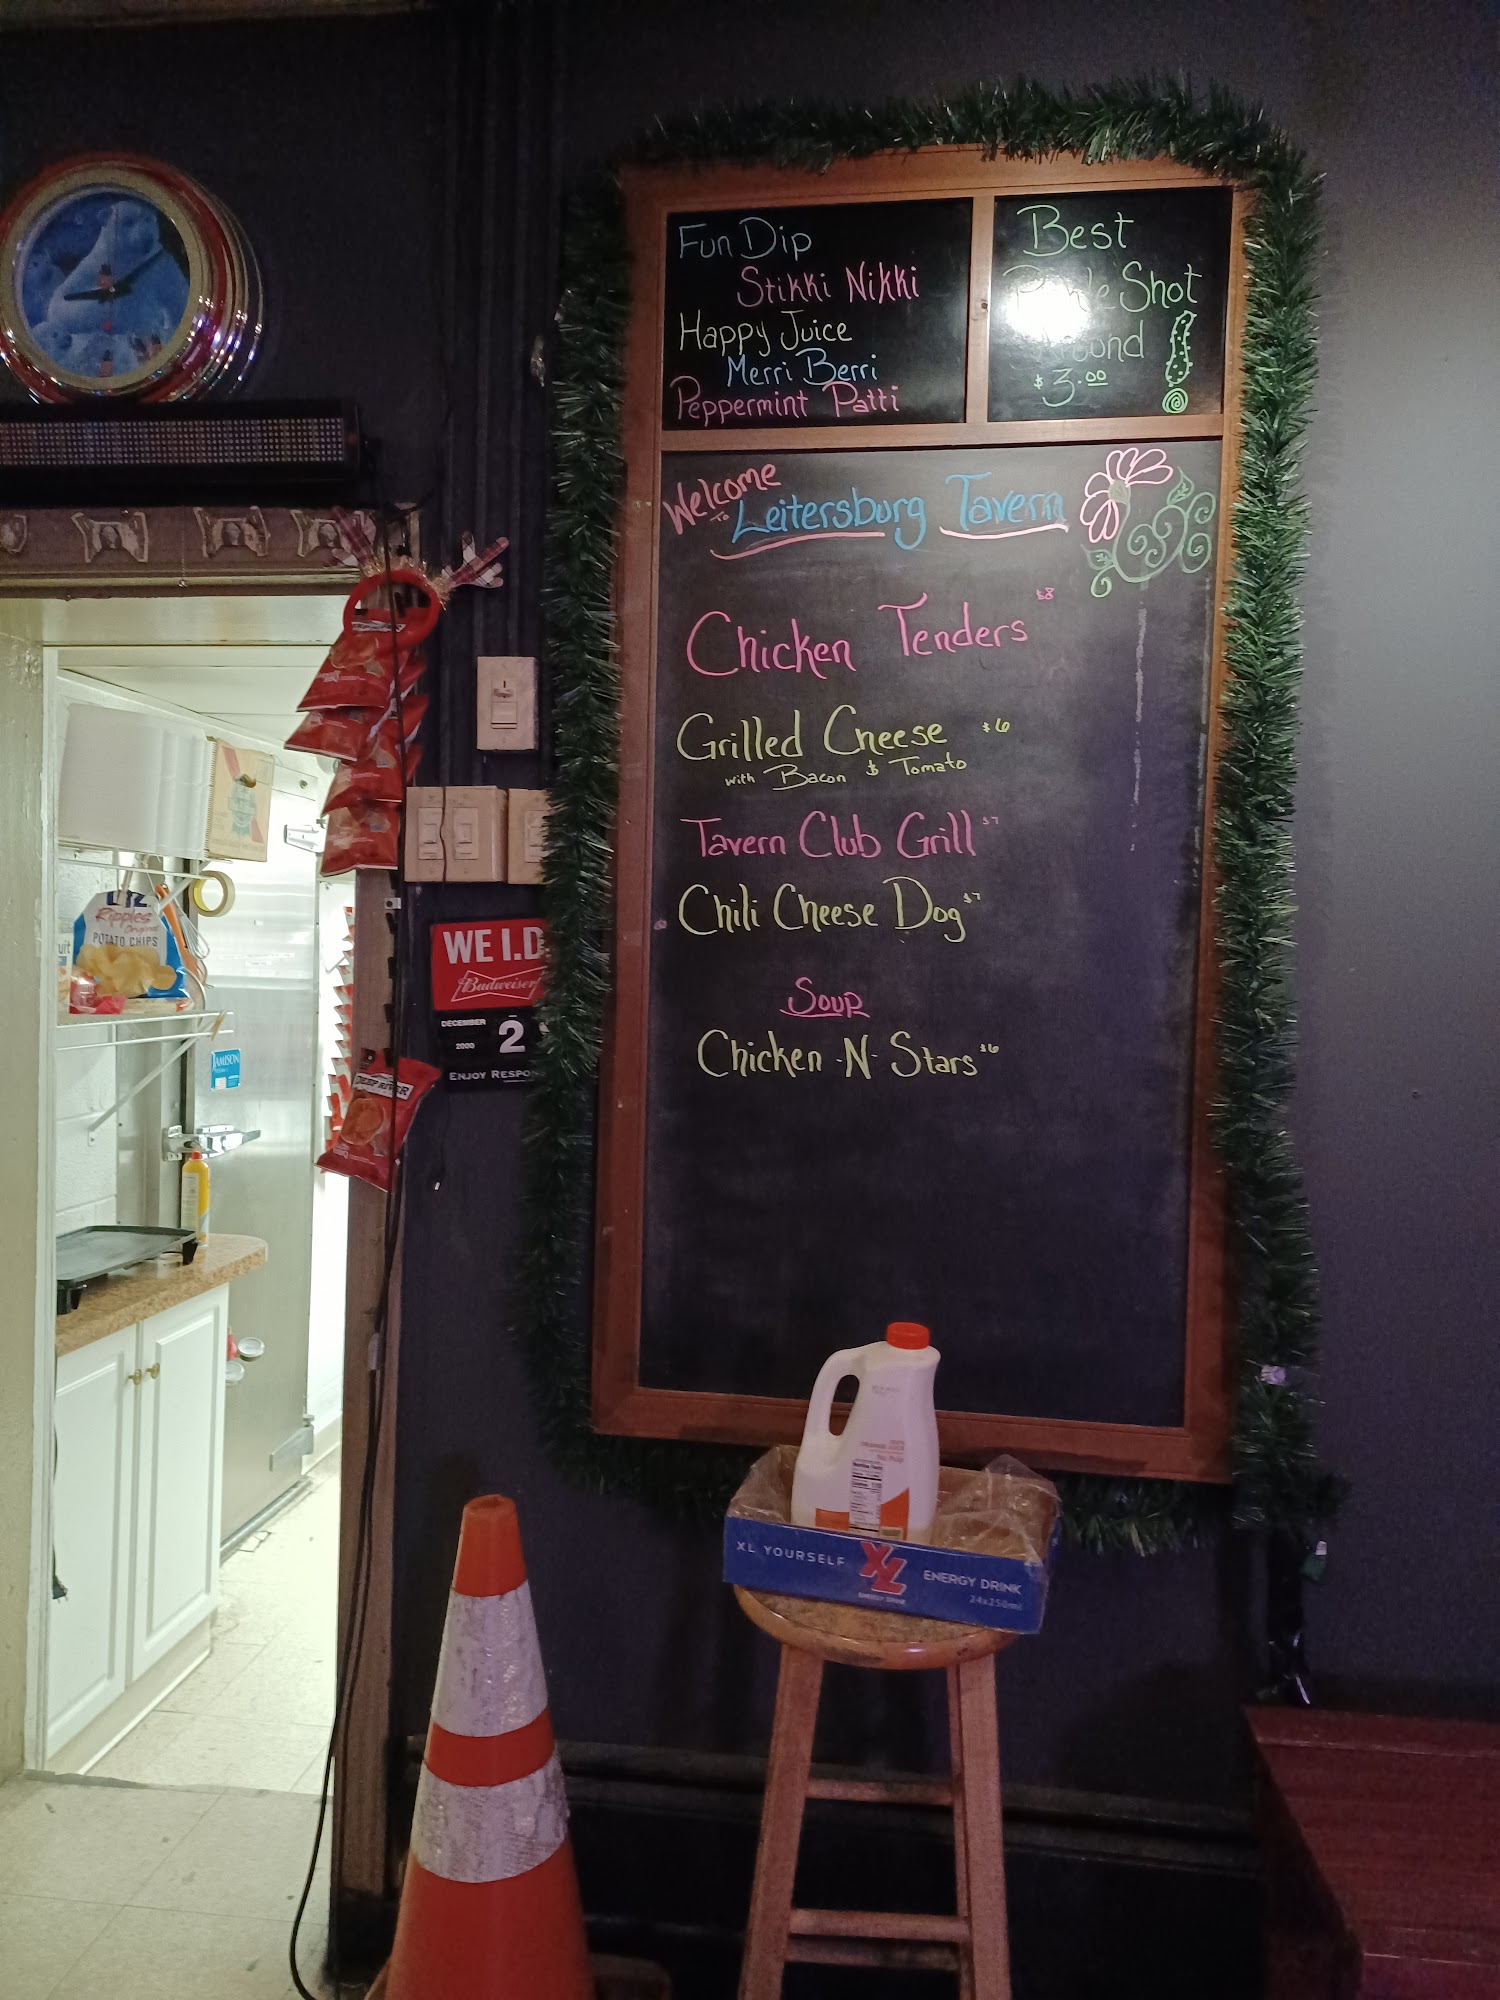 Fun Dip
Stikki Nikki
Happy Juice
Merri Berri
Peppermint Patti
Best
Shot
Around
$3.00
Welcome
To Leitersburg Tavern
Chicken Tenders $8
Grilled Cheese $6
with Bacon & Tomato
Tavern Club Grill $7
Chili Cheese Dog $7
Soup
Chicken -N- Stars $6
WE I.D.
Budweiser
DECEMBER
2000
2
ENJOY RESPON
Ripples
Original
POTATO CHIPS
DEEP RIVER
No Pulp
Nutrition Facts
XL YOURSELF
XL
ENERGY DRINK
ENERGY DRINK
24x250ml